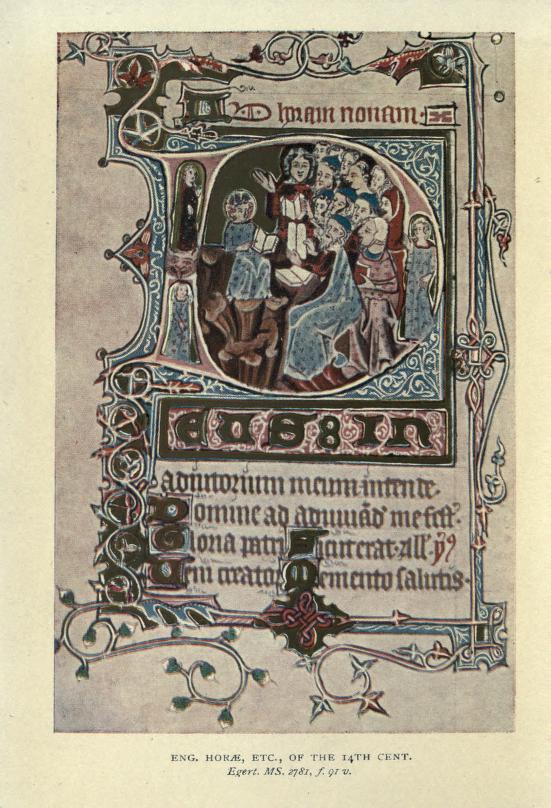 AD horam nonam.
EUS IN
adiutorium meum intende.
Domine ad adiuuād' me fest'.
Gloria patri Sicut erat. All'. ps
Veni creator Memento salutis.
ENG. HORÆ, ETC., OF THE 14TH CENT.
Egert. MS. 2781, f. 91 v.